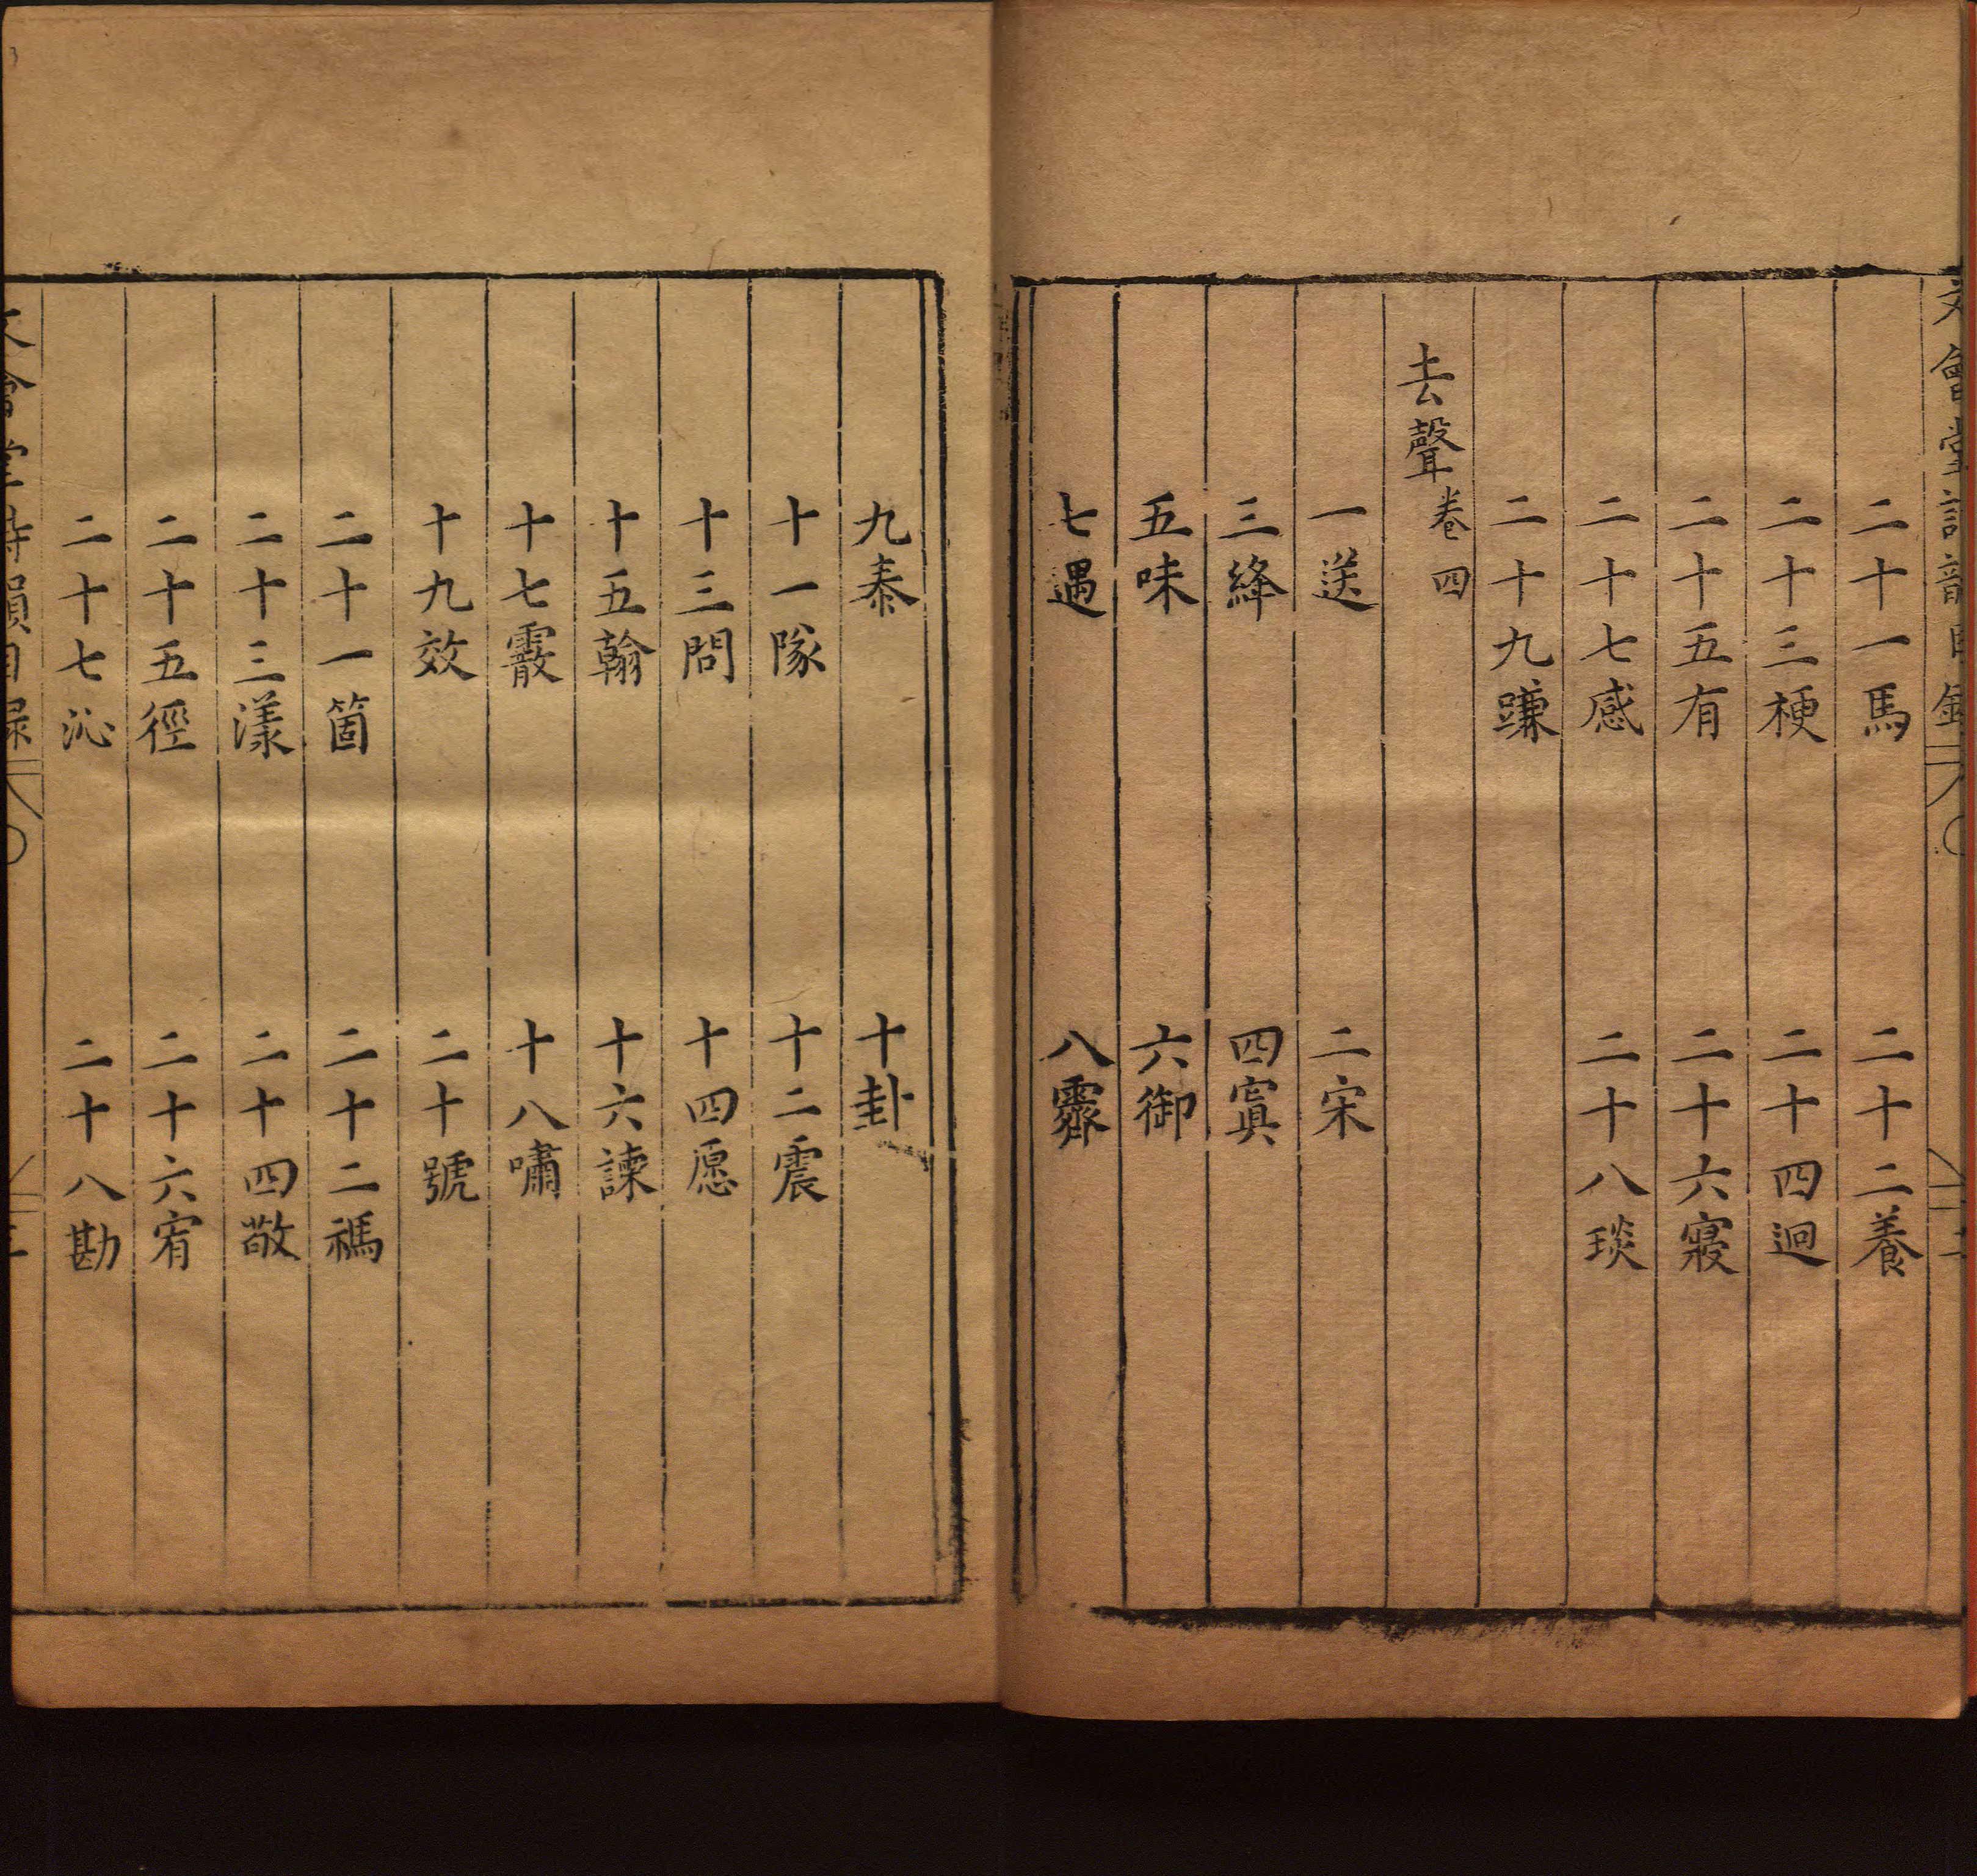 文會堂詩韻目錄
二十一馬 二十二養
二十三梗 二十四迥
二十五有 二十六寢
二十七感 二十八琰
二十九豏
去聲 卷四
一送 二宋
三絳 四寘
五味 六御
七遇 八霽
九泰 十卦
十一隊 十二震
十三問 十四愿
十五翰 十六諫
十七霰 十八嘯
十九效 二十號
二十一箇 二十二禡
二十三漾 二十四敬
二十五徑 二十六宥
二十七沁 二十八勘
文會堂詩韻目錄